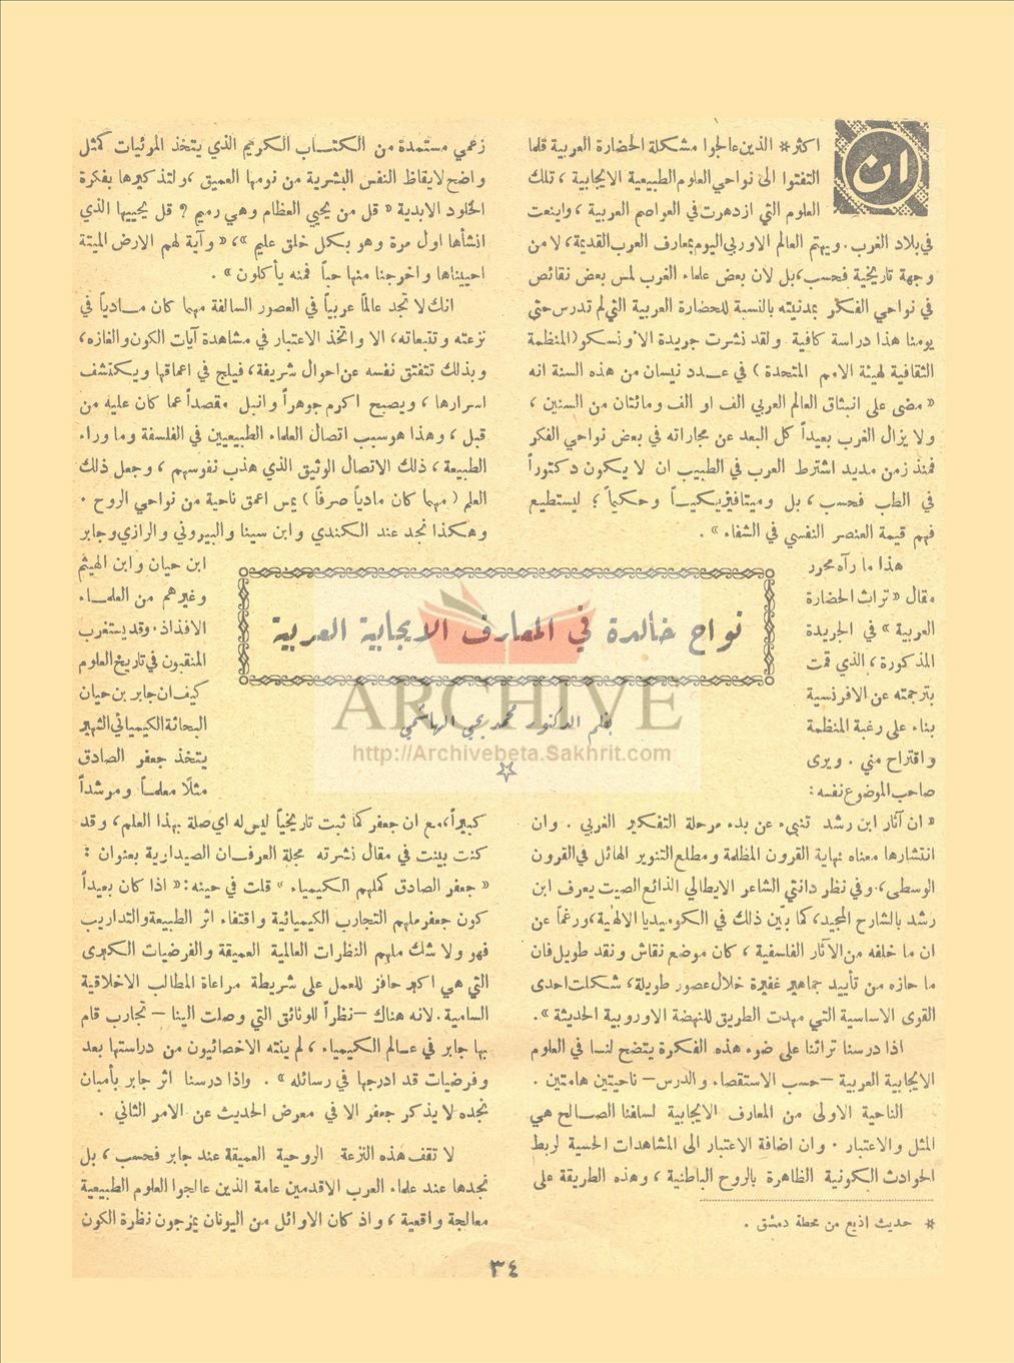 نواح خالدة في المعارف الايجابية العربية
بقلم الدكتور محمد يحيى الهاشمي
ان اكثر* الذين عالجوا مشكلة الحضارة العربية قلما
التفتوا الى نواحي العلوم الطبيعية الايجابية ، تلك
العلوم التي ازدهرت في العواصم العربية ، واينعت
في بلاد الغرب . ويهتم العالم الاوربي اليوم بمعارف العرب القديمة، لا من
وجهة تاريخية فحسب، بل لان بعض علماء الغرب لمس بعض نقائص
في نواحي الفكر بمدنيته بالنسبة للحضارة العربية التي لم تدرس حتى
يومنا هذا دراسة كافية ولقد نشرت جريدة الاونسكو (المنظمة
الثقافية لهيئة الامم المتحدة ) في عدد نيسان من هذه السنة انه
« مضى على انبثاق العالم العربي الف او الف ومائتان من السنين ،
ولا يزال الغرب بعيداً كل البعد عن مجاراته في بعض نواحي الفكر
فمنذ زمن مديد اشترط العرب في الطبيب ان لا يكون دكتوراً
في الطب فحسب ، بل وميتافيزيكيـاً وحكيماً ؛ ليستطيع
فهم قيمة العنصر النفسي في الشفاء » .
هذا ما رآه محرر
مقال « تراث الحضارة
العربية » في الجريدة
المذكورة ، الذي قمت
بترجمته عن الافرنسية
بناء على رغبة المنظمة
واقتراح مني . ويرى
صاحب الموضوع نفسه :
« ان آثار ابن رشد تنبيء عن بدء مرحلة التفكير الغربي . وان
انتشارها معناه نهاية القرون المظلمة ومطلع التنوير الهائل في القرون
الوسطى ، وفي نظر دانتي الشاعر الايطالي الذائع الصيت يعرف ابن
رشد بالشارح المجيد، كما بيّن ذلك في الكوميديا الالهية، ورغماً عن
ان ما خلفه من الآثار الفلسفية ، كان موضع نقاش ونقد طويل فان
ما حازه من تأييد جماهير غفيرة خلال عصور طويلة، شكلت احدى
القوى الاساسية التي مهدت الطريق للنهضة الاوروبية الحديثة ».
اذا درسنا تراثنا على ضوء هذه الفكرة يتضح لنـا في العلوم
الايجابية العربية – حسب الاستقصاء والدرس – ناحيتين هامتين .
الناحية الاولى من المعارف الايجابية لسلفنا الصـالح هي
المثل والاعتبار . وان اضافة الاعتبار الى المشاهدات الحسية لربط
الحوادث الكونية الظاهرة بالروح الباطنية ، وهذه الطريقة على
* حديث اذيع من محطة دمشق .
زعمي مستمدة من الكتـاب الكريم الذي يتخذ المرئيات كمثل
واضح لايقاظ النفس البشرية من نومها العميق ، ولتذكيرها بفكرة
الخلود الابدية « قل من يحيي العظام وهي رميم ؟ قل يحييها الذي
انشأها اول مرة وهو بكل خلق عليم »، « وآية لهم الارض الميتة
احييناها واخرجنا منها حباً فمنه يأكلون » .
انك لا تجد عالماً عربياً في العصور السالفة مهما كان مـادياً في
نزعته وتتبعاته، الا واتخذ الاعتبار في مشاهدة آيات الكون والغازه،
وبذلك تتفتق نفسه عن احوال شريفة، فيلج في اعماقها ويكتشف
اسرارها ، ويصبح اكرم جوهراً وانبل مقصداً عما كان عليه من
قبل ، وهذا هو سبب اتصال العلماء الطبيعيين في الفلسفة وما وراء
الطبيعة ، ذلك الاتصال الوثيق الذي هذب نفوسهم ، وجعل ذلك
العلم ( مهما كان مادياً صرفاً ) يمس اعمق ناحية من نواحي الروح .
وهكذا نجد عند الكندي وابن سينا والبيروني والرازي وجابر
ابن حيان وابن الهيثم
وغيرهم من العلمـاء
الافذاذ . وقد يستغرب
المنقبون في تاريخ العلوم
كيف ان جابر بن حيان
البحاثة الكيميائي الشهير
يتخذ جعفر الصادق
مثلًا معلمـاً ومرشداً
كبيراً، مع ان جعفر كما ثبت تاريخياً ليس له اي صلة بهذا العلم، وقد
كنت بينت في مقال نشرته مجلة العرفـان الصيداوية بعنوان :
« جعفر الصادق كملهم الكيمياء » قلت في حينه: « اذا كان بعيداً
كون جعفر ملهم التجارب الكيميائية واقتفاء اثر الطبيعة والتداريب
فهو ولا شك ملهم النظرات العالمية العميقة والفرضيات الكبرى
التي هي اكبر حافز للعمل على شريطة مراعاة المطالب الاخلاقية
السامية . لانه هناك – نظراً للوثائق التي وصلت الينا – تجارب قام
بها جابر في عـالم الكيمياء ، لم ينته الاخصائيون من دراستها بعد
وفرضيات قد ادرجها في رسائله » . واذا درسنا اثر جابر بأمعان
نجده لا يذكر جعفر الا في معرض الحديث عن الامر الثاني .
لا تقف هذه النزعة الروحية العميقة عند جابر فحسب ، بل
نجدها عند علماء العرب الاقدمين عامة الذين عالجوا العلوم الطبيعية
معالجة واقعية ، واذ كان الاوائل من اليونان يمزجون نظرة الكون
٣٤
ARCHIVE
http://Archivebeta.Sakhrit.com